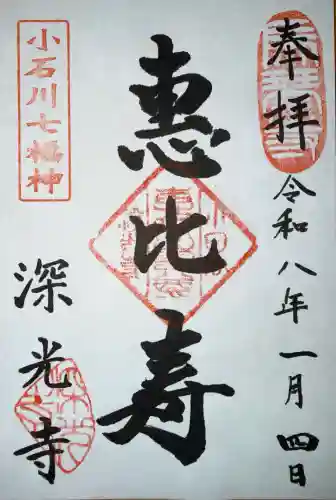 奉拝
令和八年一月四日
惠比寿
小石川七福神
深光寺